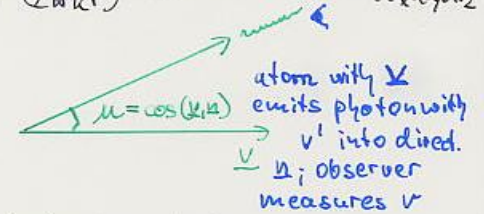 atom with v
μ = cos(v,n)
emits photon with
ν' into direct.
v
n; observer
measures ν